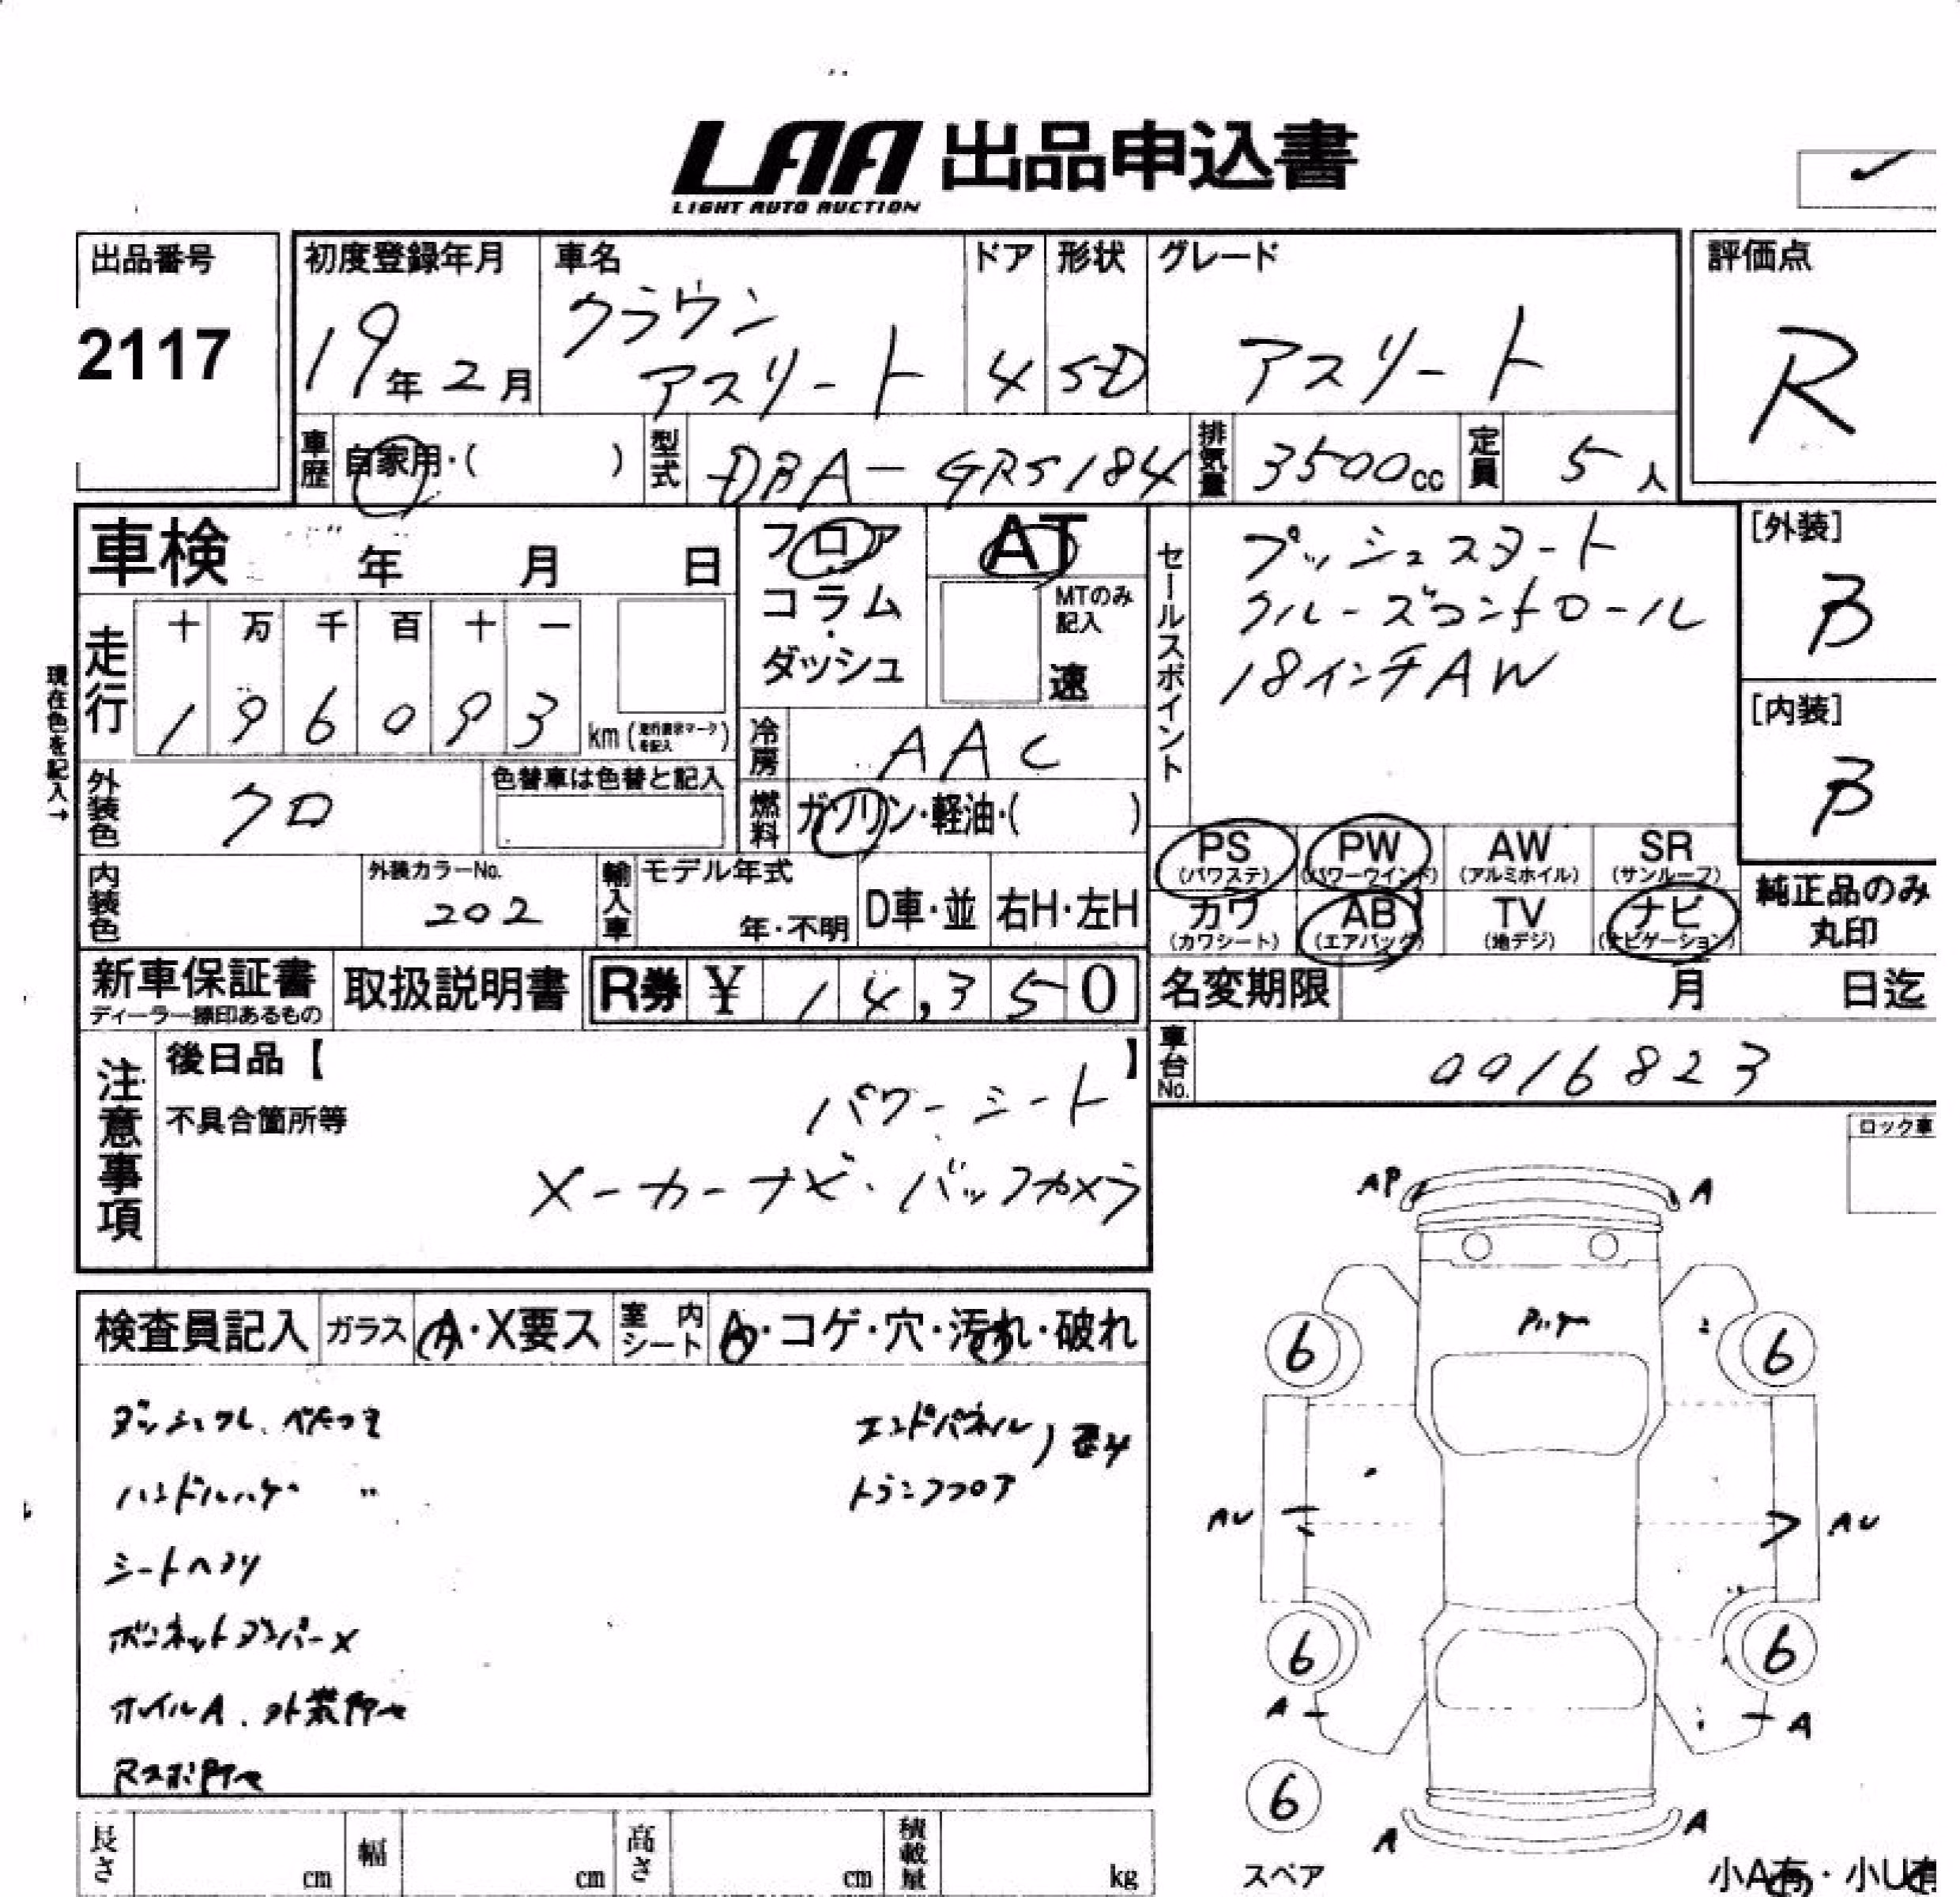 LAA 出品申込書
LIGHT AUTO AUCTION
出品番号
2117
初度登録年月
19年2月
車名
クラウン
アスリート
ドア
4
形状
SD
グレード
アスリート
評価点
R
車歴
自家用・( )
型式
DBA-GRS184
排気量
3500cc
定員
5人
車検 年 月 日
フロア
コラム
・
ダッシュ
AT
MTのみ
記入
速
セールスポイント
プッシュスタート
クルーズコントロール
18インチAW
[外装]
B
[内装]
B
現在色を記入→
走行
十 万 千 百 十 一
1 9 6 0 9 3
km(走行表示マークを記入)
冷房
AAC
外装色
クロ
色替車は色替と記入
燃料
ガソリン・軽油・( )
PS
(パワステ)
PW
(パワーウインド)
AW
(アルミホイル)
SR
(サンルーフ)
カワ
(カワシート)
AB
(エアバッグ)
TV
(地デジ)
ナビ
(ナビゲーション)
純正品のみ
丸印
内装色
外装カラーNo.
202
輸入車
モデル年式
年・不明
D車・並
右H・左H
新車保証書
ディーラー捺印あるもの
取扱説明書
R券 ¥ 14,350
名変期限 月 日迄
車台No.
0016823
注意事項
後日品【 】
不具合箇所等
パワーシート
メーカーナビ・バックカメラ
ロック車
検査員記入
ガラス
A・X要ス
室内シート
A・コゲ・穴・汚れ・破れ
ダッシュワレ、べたつき
ハンドルハゲ 〃
シートヘタリ
ボンネットダンパーX
ホイルA、外装
エンドパネル
トランクフロア
AP A
6 6
AU AU
6 6
A A
6
スペア
A A
小A有・小U有
長さ cm
幅 cm
高さ cm
積載量 kg